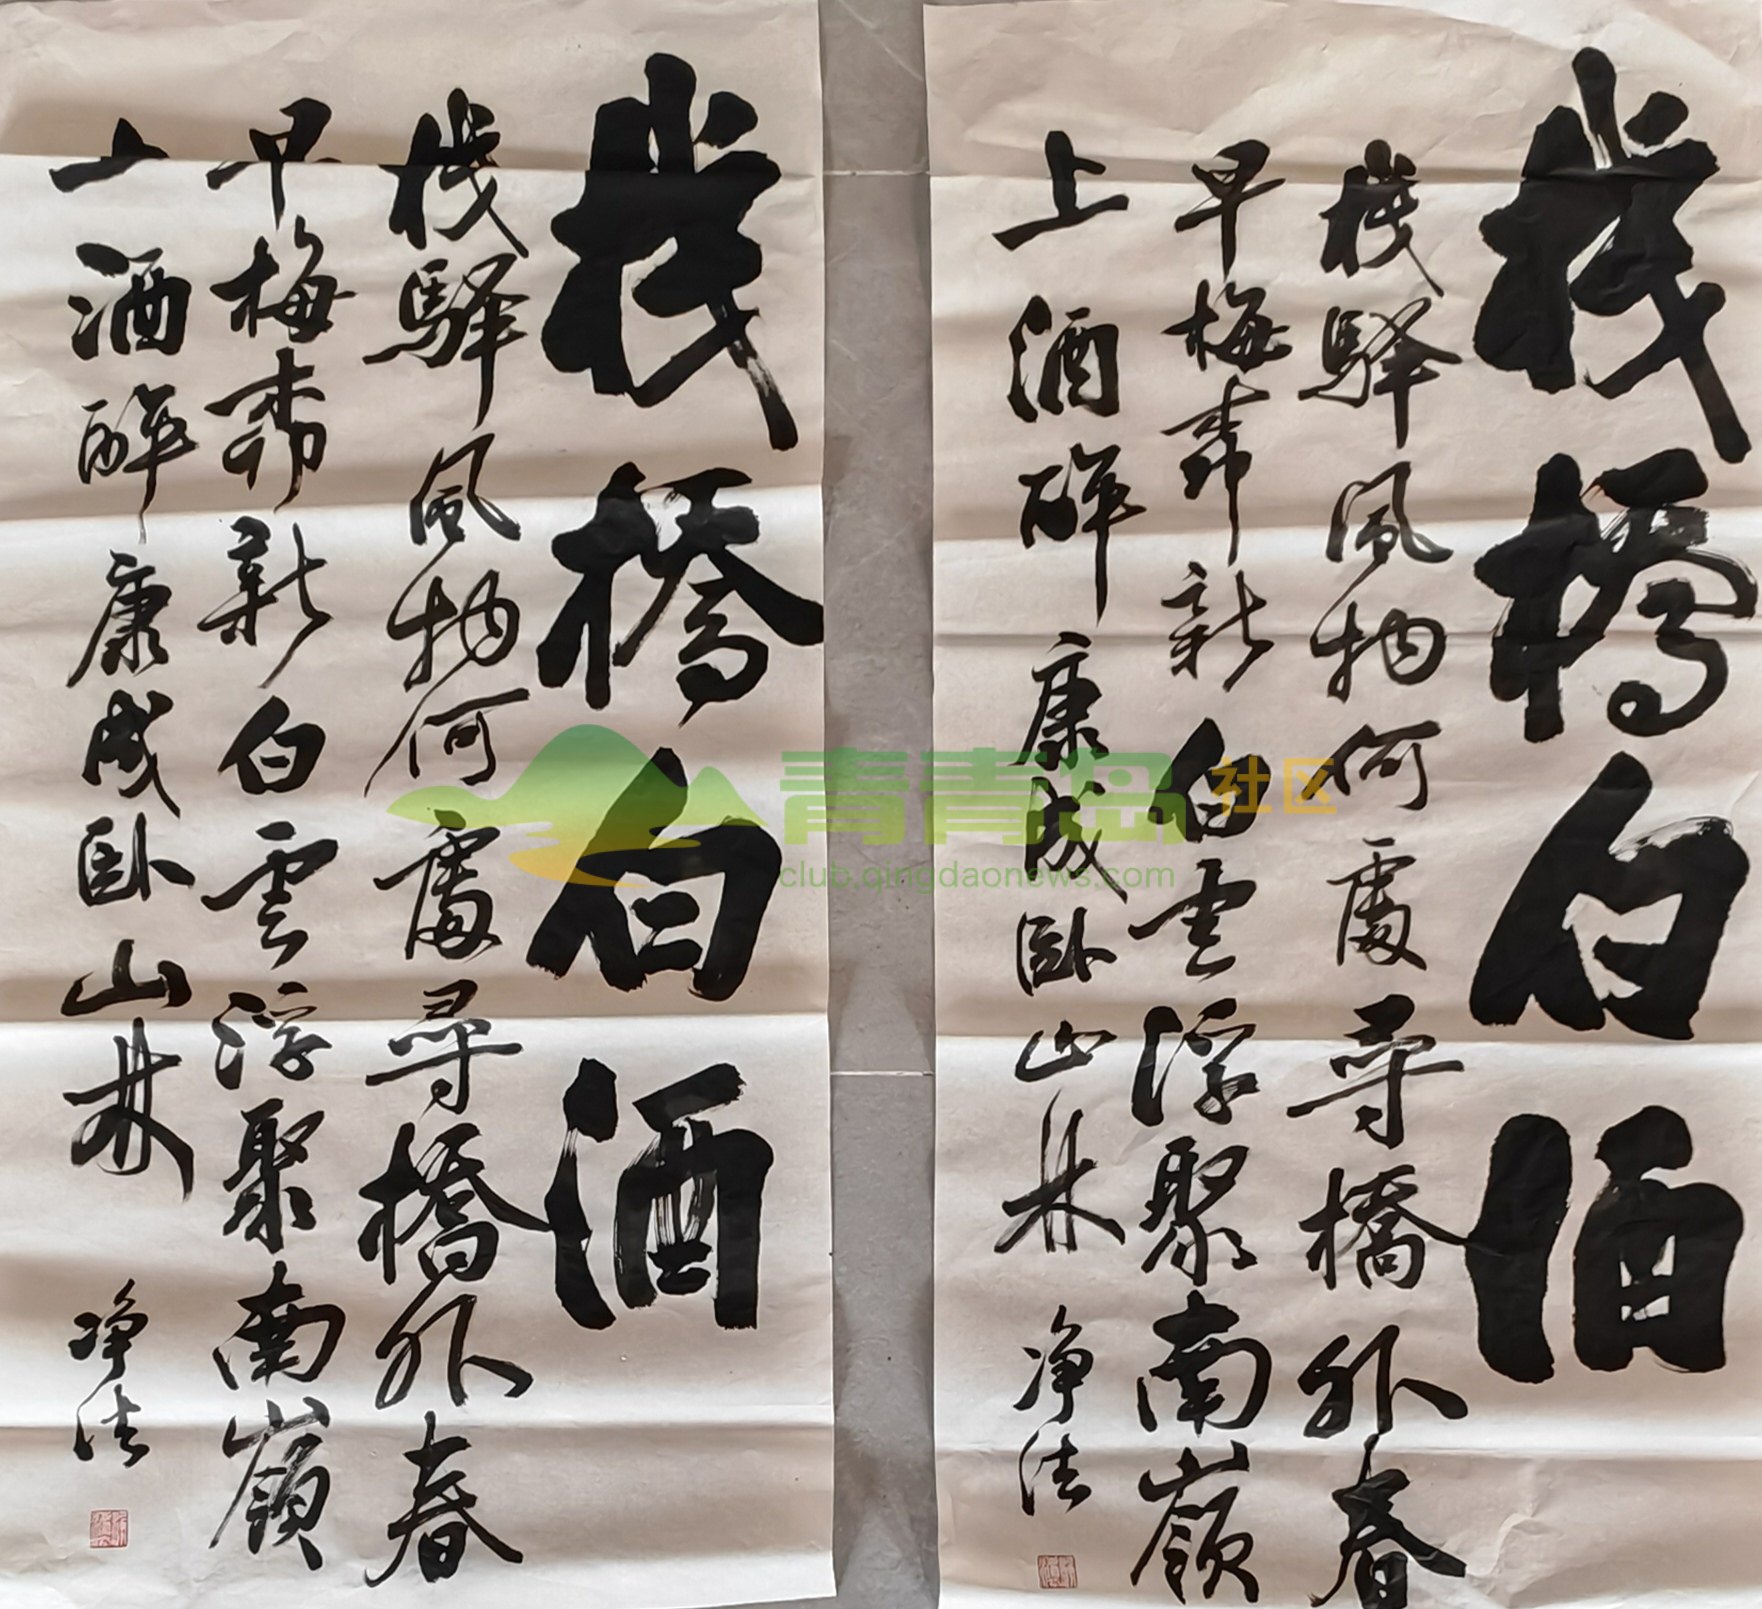 栈橋白酒
栈驿風物何處尋橋外春
早梅新白雲浮聚南嶺
上酒醉康成卧山林
净法
栈橋白酒
栈驿風物何處尋橋外春
早梅新白雲浮聚南嶺
上酒醉康成卧山林
净法
青青岛社区
club.qingdaonews.com